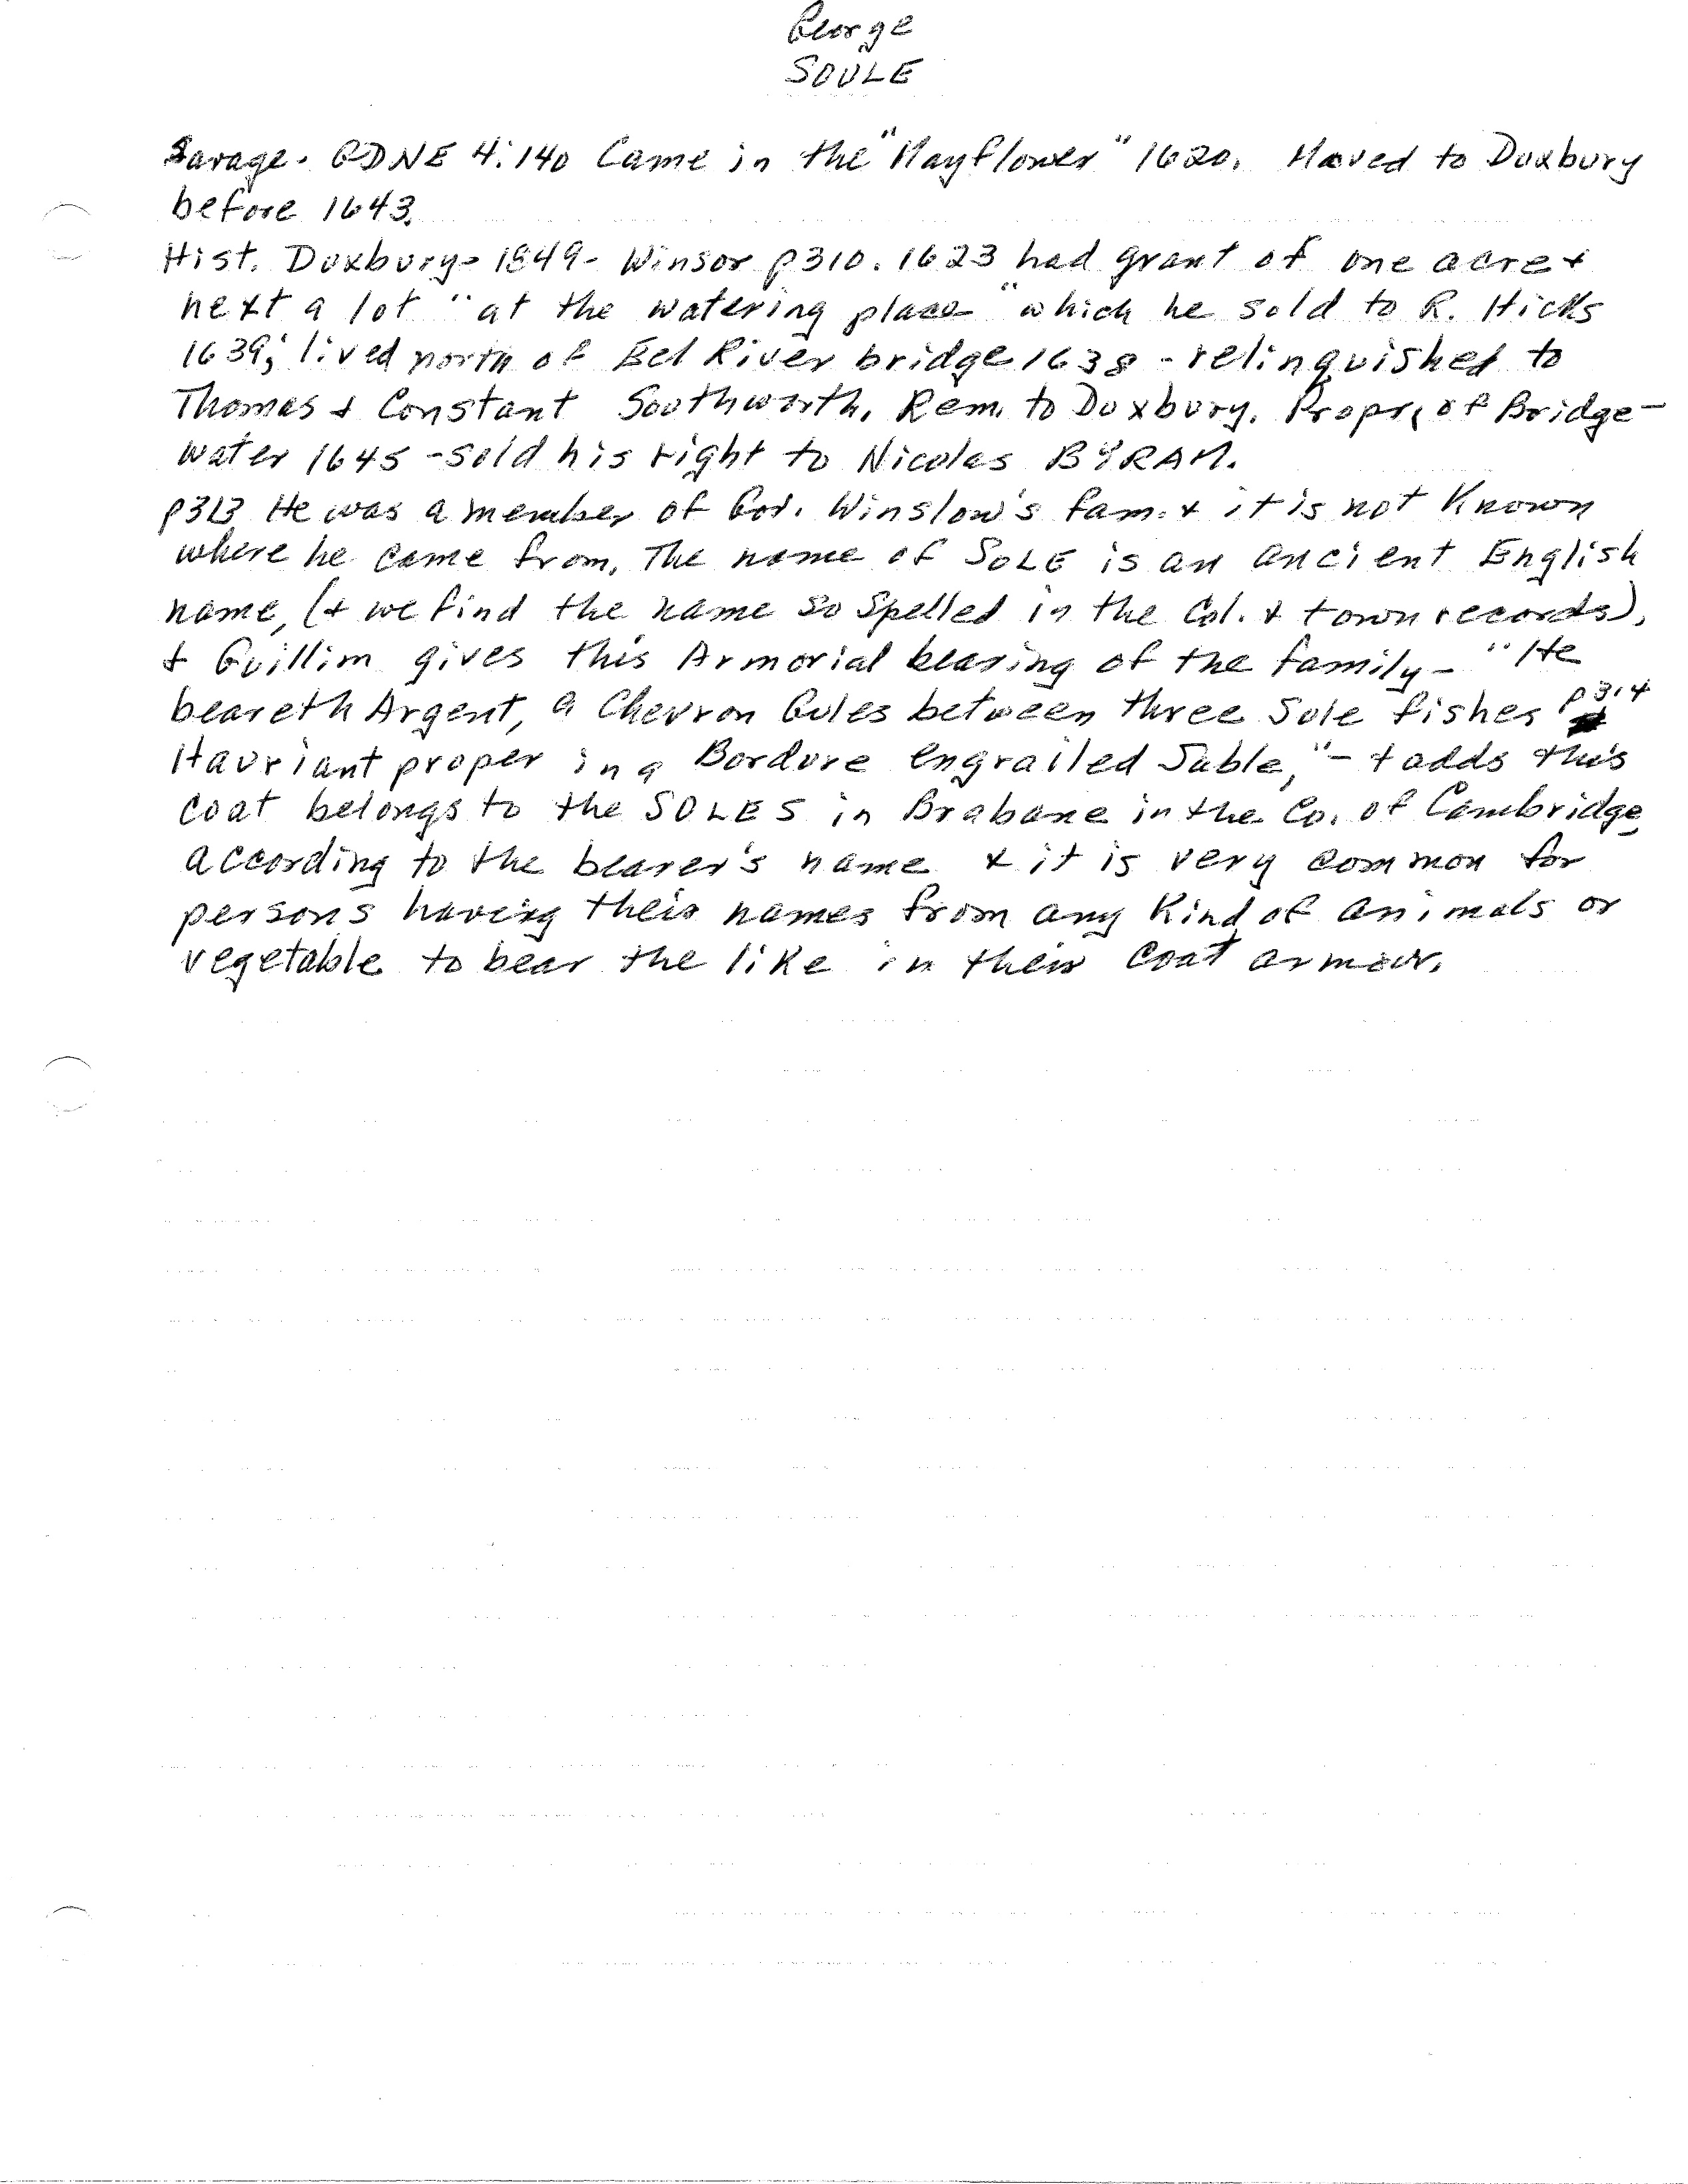 George
SOULE
Savage. GDNE 4:140 Came in the "Mayflower" 1620. Moved to Duxbury
before 1643.
Hist. Duxbury - 1849 - Winsor p310. 1623 had grant of one acre &
next a lot "at the watering place" which he sold to R. Hicks
1639; lived north of Eel River bridge 1638 - relinquished to
Thomas & Constant Southworth. Rem. to Duxbury. Propr. of Bridge-
water 1645 - sold his right to Nicolas BYRAM.
p313 He was a member of Gov. Winslow's fam. & it is not Known
where he came from. The name of SOLE is an ancient English
name, (& we find the name so spelled in the Col. & town records),
& Guillim gives this Armorial bearing of the family - "He
beareth Argent, a Chevron Gules between three Sole fishes p314
Hauriant proper in a Bordure engrailed Sable," - & adds this
coat belongs to the SOLES in Brabane in the Co. of Cambridge,
according to the bearer's name & it is very common for
persons having their names from any Kind of animals or
vegetable to bear the like in their coat armour.